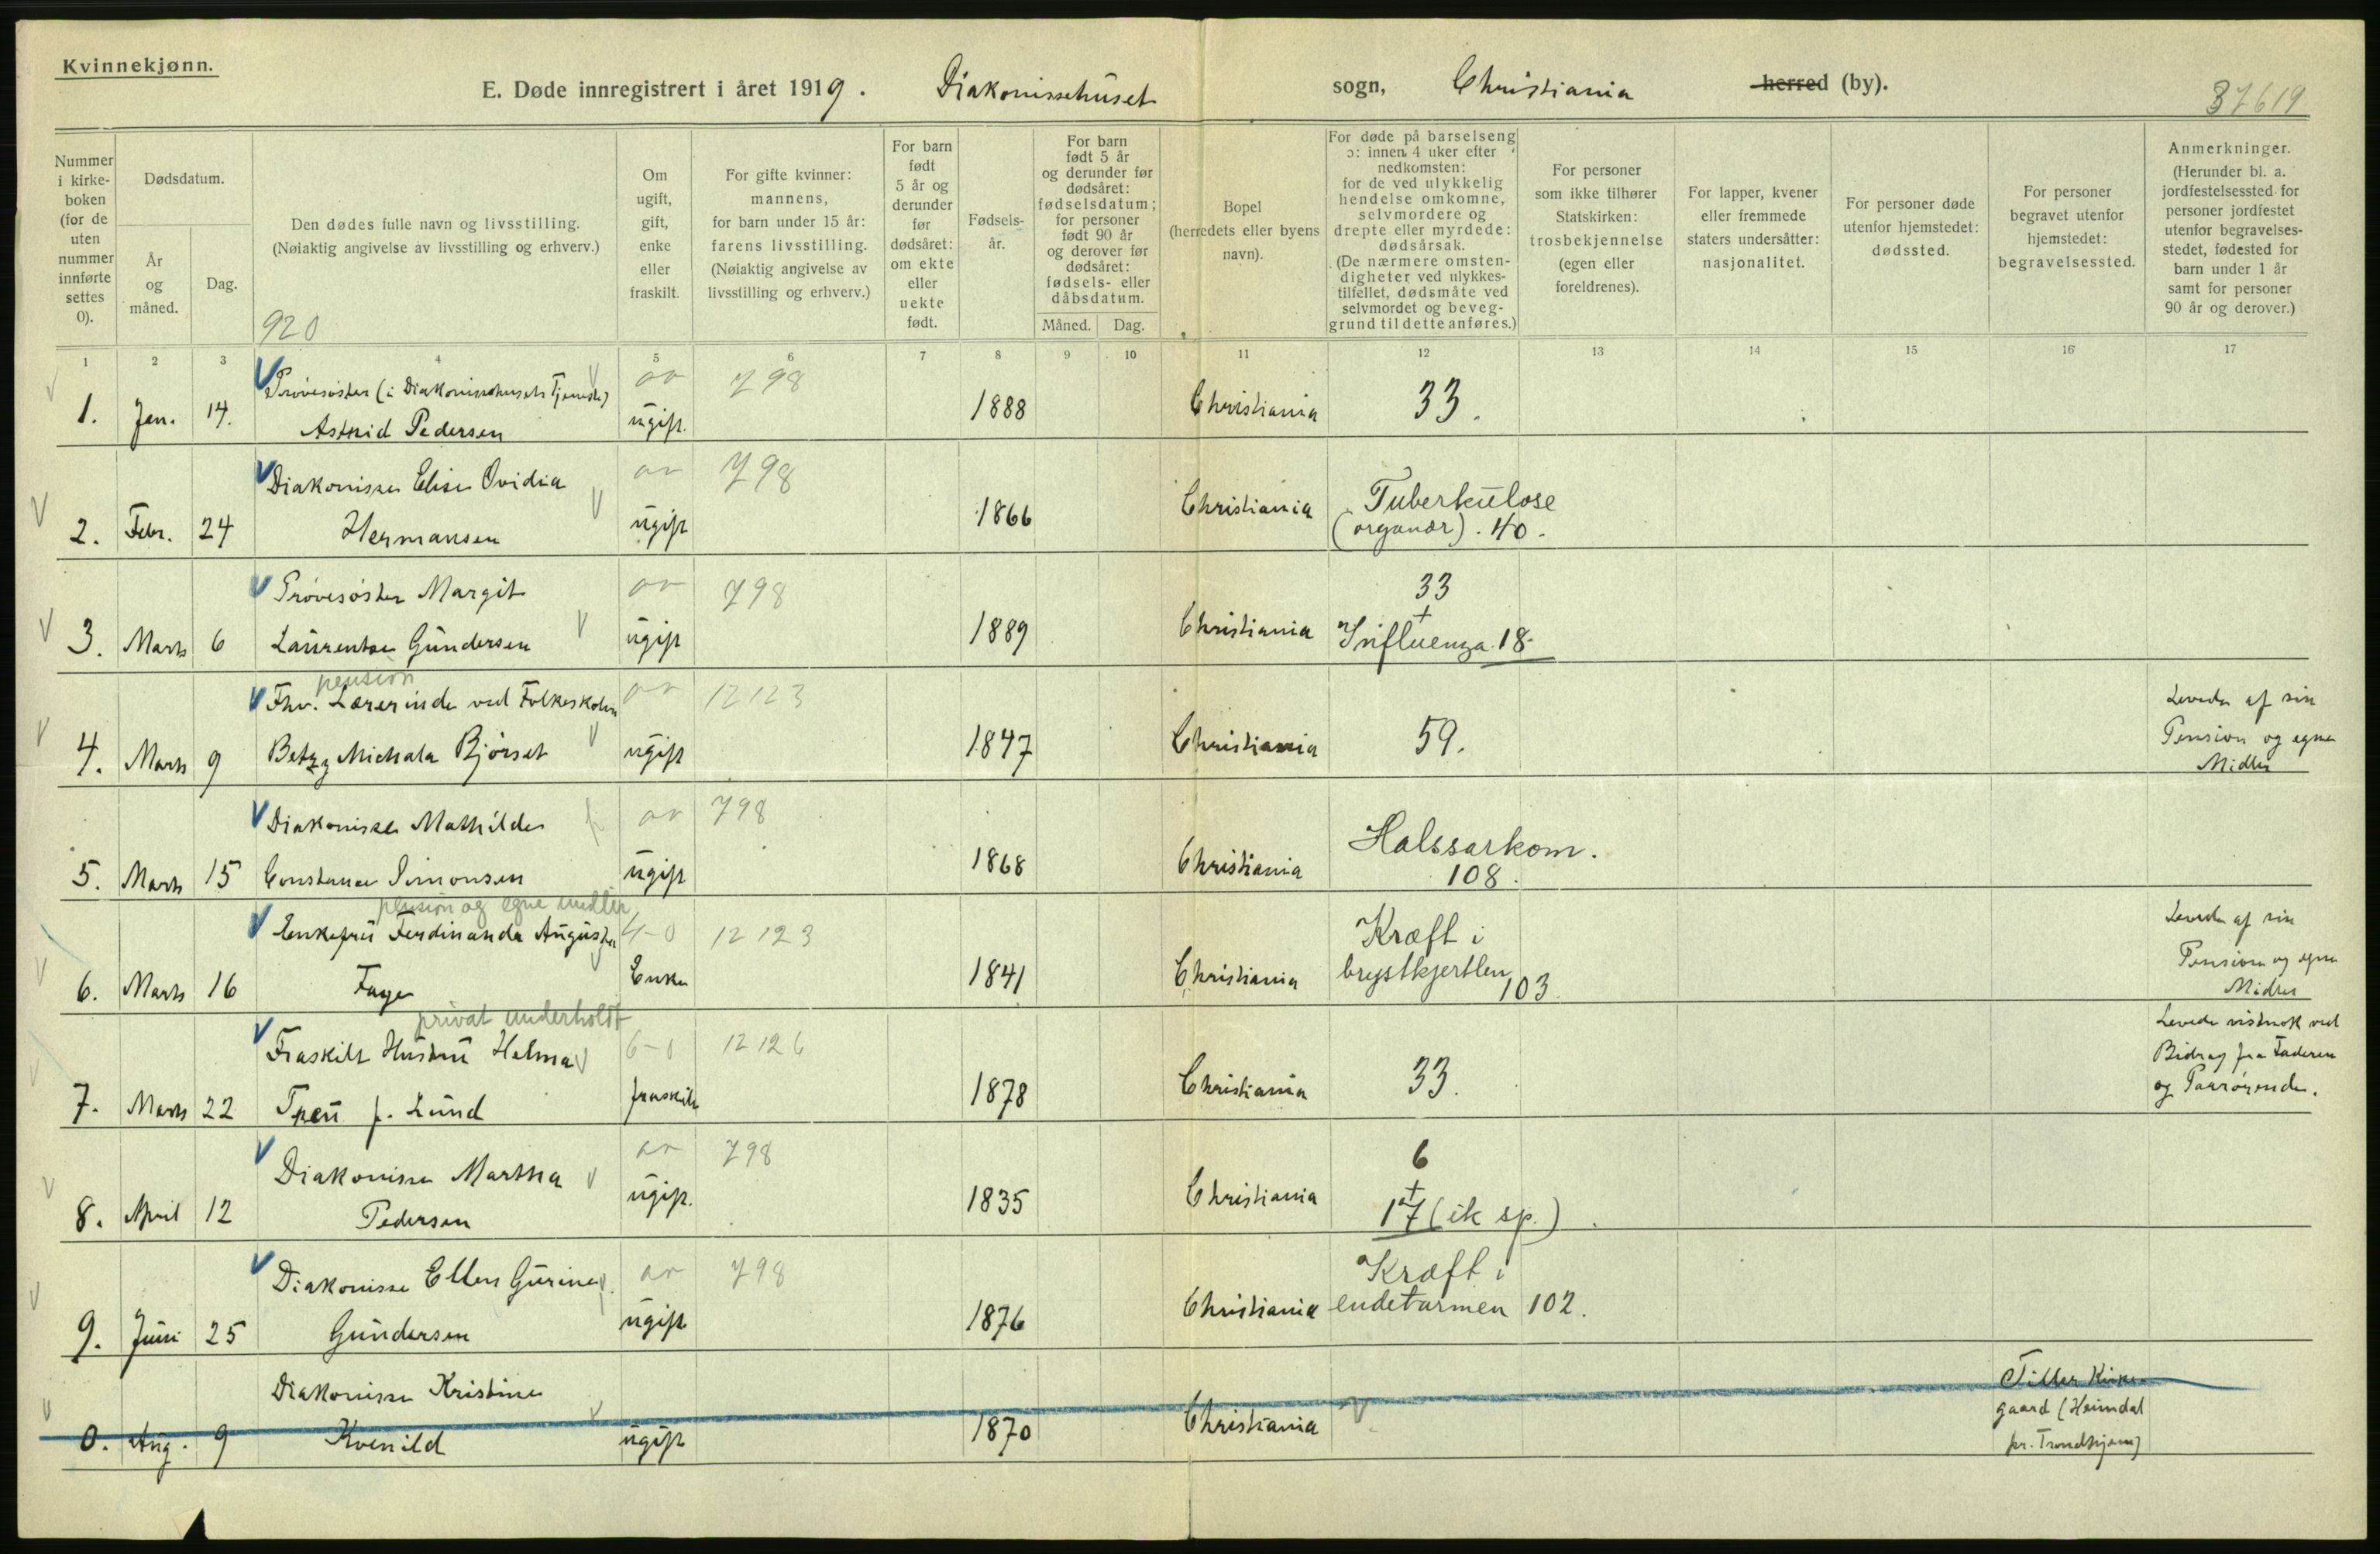 Kvinnekjønn.
E. Døde innregistrert i året 1919. Diakonissehuset sogn, Christiania herred (by). 37619
Nummer i kirke-boken (for de uten nummer innførte settes 0).
Dødsdatum.
År og måned.
Dag.
Den dødes fulle navn og livsstilling.
(Nøiaktig angivelse av livsstilling og erhverv.)
920
Om ugift, gift, enke eller fraskilt.
For gifte kvinner: mannens, for barn under 15 år: farens livsstilling. (Nøiaktig angivelse av livsstilling og erhverv.)
For barn født 5 år og derunder før dødsåret: om ekte eller uekte født.
Fødsels-år.
For barn født 5 år og derunder før dødsåret: fødselsdatum; for personer født 90 år og derover før dødsåret: fødsels- eller dåbsdatum.
Måned. Dag.
Bopel (herredets eller byens navn).
For døde på barselseng ɔ: innen 4 uker efter nedkomsten: for de ved ulykkelig hendelse omkomne, selvmordere og drepte eller myrdede: dødsårsak. (De nærmere omsten-digheter ved ulykkes-tilfellet, dødsmåte ved selvmordet og beveg-grund til dette anføres.)
For personer som ikke tilhører Statskirken: trosbekjennelse (egen eller foreldrenes).
For lapper, kvener eller fremmede staters undersåtter: nasjonalitet.
For personer døde utenfor hjemstedet: dødssted.
For personer begravet utenfor hjemstedet: begravelsessted.
Anmerkninger. (Herunder bl. a. jordfestelsessted for personer jordfestet utenfor begravelses-stedet, fødested for barn under 1 år samt for personer 90 år og derover.)
1 2 3 4 5 6 7 8 9 10 11 12 13 14 15 16 17
Prøvesøster (i Diakonissehusets Tjeneste) 798
1. Jan. 14. Astrid Pedersen ugift. 1888 Christiania 33.
Diakonisse Elise Ovidia 798 Tuberkulose
2. Febr. 24 Hermansen ugift 1866 Christiania (organær). 40.
Prøvesøster Margit 798 33
+
3. Marts 6 Laurentse Gundersen ugift 1889 Christiania Influenza 18.
pension
Fhv. Lærerinde ved Folkeskolen 12123 Levede af sin
4. Marts 9 Betzy Michala Bjørset ugift 1847 Christiania 59. Pension og egne
Midler
Diakonisse Mathilde 798 Halssarkom.
5. Marts 15 Constance Simonsen ugift 1868 Christiania 108.
pension og egne midler
Enkefru Ferdinande Augusta 4-0 12123 Kræft i Levede af sin
6. Marts 16 Faye Enke 1841 Christiania brystkjertlen 103. Pension og egne
Midler
privat underholdt
Fraskilt Hustru Helma 6-0 12126 Levede vistnok ved
Bidrag fra Faderen
7. Marts 22 f. Lund fraskilt 1878 Christiania 33. og Paarørende.
Diakonisse Martha 798 6
+
8. April 12 Pedersen ugift. 1835 Christiania 17 (ik sp.)
Diakonisse Ellen Gurine 798 Kræft i
9. Juni 25 Gundersen ugift 1876 Christiania endetarmen 102.
Diakonisse Kristine Tiller Kirke-
gaard (Heimdal
0. Aug. 9 Kvenild ugift 1870 Christiania pr. Trondhjem)